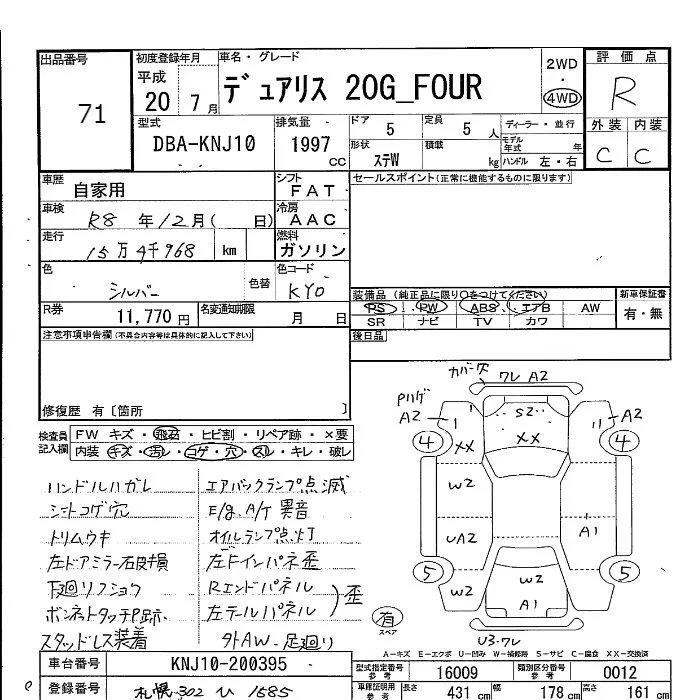 出品番号 71
初度登録年月 平成 20 7 月
車名・グレード デュアリス 20G_FOUR
2WD・4WD
評価点 R
型式 DBA-KNJ10
排気量 1997 cc
ドア 5
定員 5 人
形状 ステW
積載 kg
ディーラー・並行
モデル年式 年
ハンドル 左・右
外装 内装
C C
車歴 自家用
シフト FAT
セールスポイント(正常に機能するものに限ります)
車検 R8 年 12月( 日)
冷房 AAC
走行 15万4千968 km
燃料 ガソリン
色 シルバー 色替
色コード KY0
装備品(純正品に限り○をつけてください)
新車保証書
PS・PW・ABS・エアB AW
有・無
SR ナビ TV カワ
R券 11,770 円
名変通知期限 月 日
後日品
注意事項申告欄(不具合内容等は具体的に記入して下さい)
修復歴 有〔箇所 〕
検査員記入欄
FW キズ・飛石・ヒビ割・リペア跡・×要
内装 キズ・汚レ・コゲ・穴・スレ・キレ・破レ
ハンドルハガレ エアバックランプ点滅
シートコゲ穴 E/g.A/T 異音
トリムウキ オイルランプ点灯
左ドアミラー石皮損 左Fインパネ歪
下廻リフショウ Rエンドパネル
ボンネットタッチP跡 左テールパネル 歪
スタッドレス装着 外AW 足廻り
カバー欠 ワレ A2
Pハゲ
A2 1 S2 11 A2
4 XX XX 4
W2
UA2 A1
5 5
W2 W2 W2
A1
有 スペア
U3・ワレ
A-キズ E-エクボ U-凹み W-補修跡 S-サビ C-腐食 XX-交換済
車台番号 KNJ10-200395
型式指定番号 参考 16009
類別区分番号 参考 0012
登録番号 札幌 302 ひ 1685
車庫証明用 参考 長さ 431 cm 幅 178 cm 高さ 161 cm